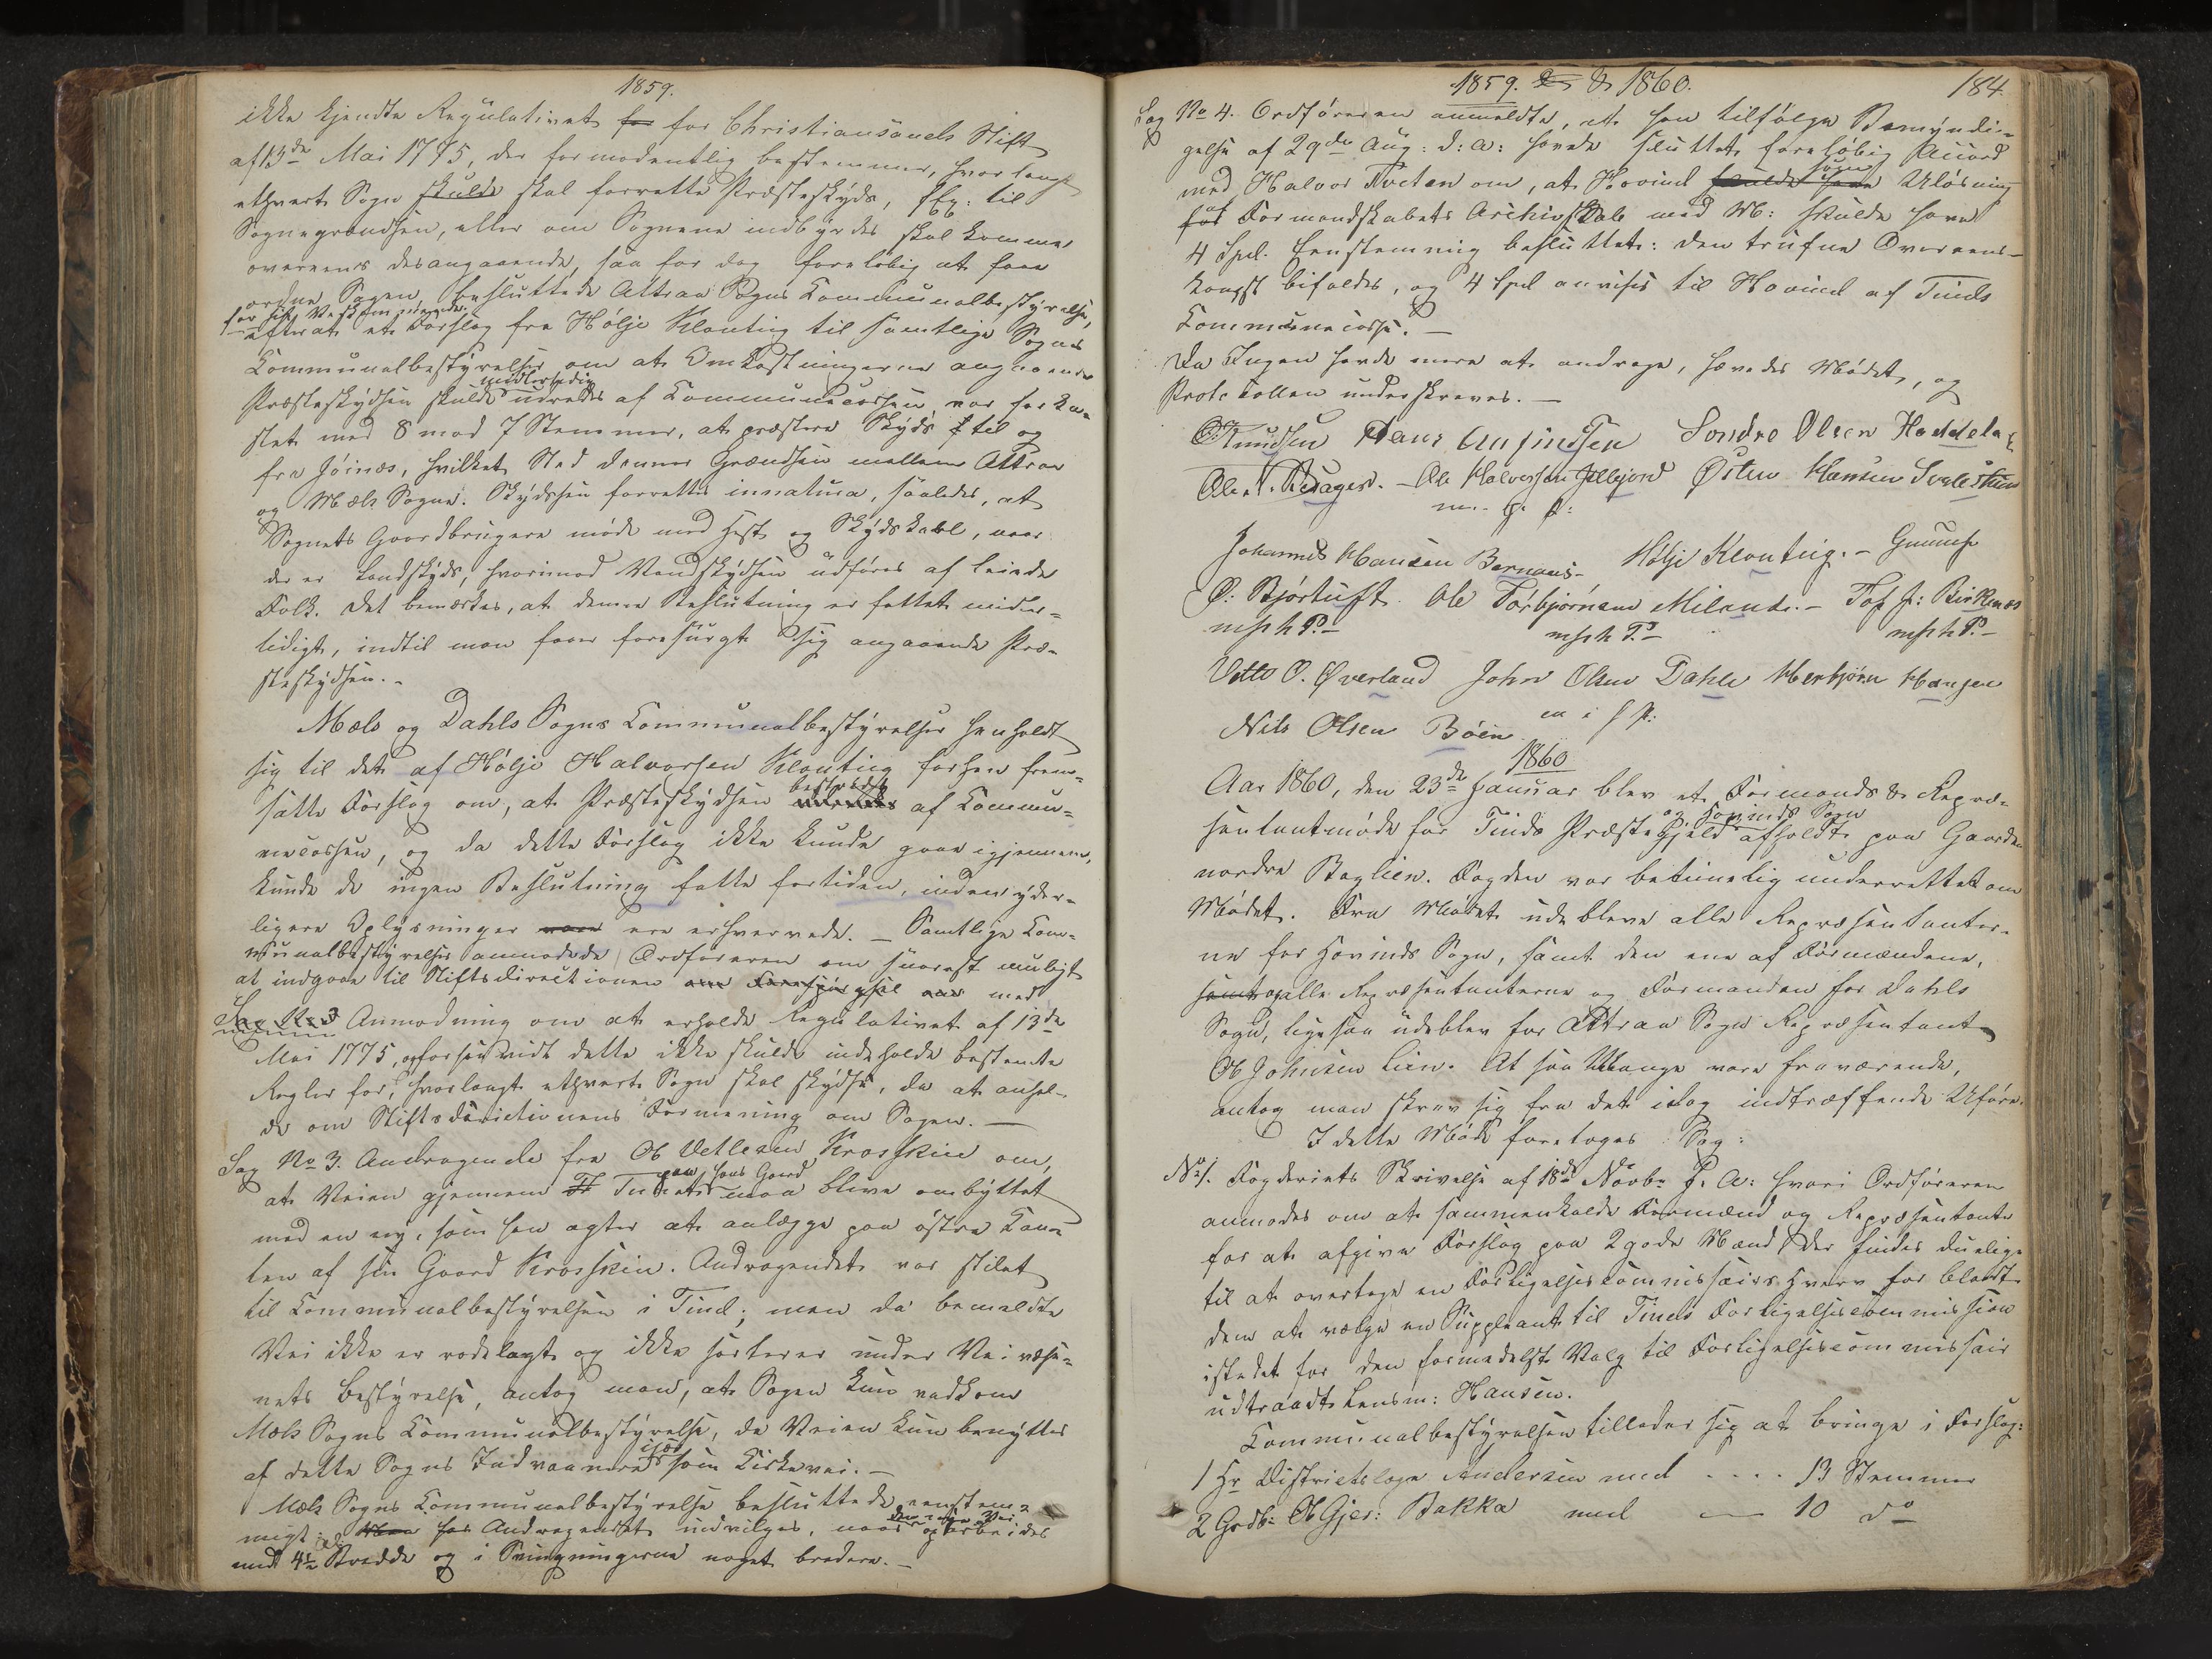 1859.
ikke kjendte Regulativet for for Christiansands Stift
af 13de Mai 1775, der formodentlig bestemmer, hvor langt
ethvert Sogn skulde skal forrette Præsteskyds, f Ex: til
Sognegrændsen, eller om Sognene indbyrdes skal komme
overeens desangaaende, saa for dog foreløbig at faae
ordne Sagen, besluttede Attraa Sogns Communalbestyrelse,
for sit Vedkommende,
efterat et Forslag fra Hølje Klonting til samtlige Sognes
Communalbestyrelser om at Omkostningerne angaaende
midlertidig
Præsteskydsen skulde udredes af Communecassen, var forka-
stet med 8 mod 7 Stemmer, at præstere Skyds til og
fra Jóinæs, hvilket Sted danner Grændsen mellem Attraa
og Mæls Sogne. Skydsen forrettes innatura, saaledes, at
Sognets Gaardbrugere møde med Hest og Skydskarl, naar
der er Landskyds, hvorimod Vandskydsen udføres af leiede
Folk. Det bemærkes, at denne Beslutning er fattet midler-
tidigt, indtil man faaer forespurgt sig angaaende Præ-
steskydsen.-
Mæls og Dahls Sogns Communalbestyrelser henholdt
sig til det af Hølje Halvorsen Klonting forhen frem-
satte Forslag om, at Præsteskydsen bestrides af Commu-
necassen, og da dette Forslag ikke kunde gaae igjennem,
kunde de ingen Beslutning fatte fortiden, inden yder-
ligere Oplysninger vare ere erhvervede. - Samtlige Com-
munalbestyrelser anmodede Ordføreren om snarest muligt
at indgaae til Stiftsdirectionen om Forespørgsel med
Sag No 3 Anmodning om at erholde Regulativet af 13de
Mai 1775, og forsaavidt dette ikke skulde indeholde bestemte
Regler for, hvorlangt ethvert Sogn skal skydse, da at anhol-
de om Stiftsdirectionens Formening om Sagen. -
Sag No 3. Andragende fra Ol Vetlesen Krosskin om,
paa hans Gaard
at Veien gjennem Tunet maa blive ombyttet
med en ny, som han agter at anlægge paa østre Kan-
ten af sin Gaard Krosskin. Andragendet var stilet
til Communalbestyrelsen i Tind; men da bemeldte
Vei ikke er rodelagt og ikke sorterer under Veivæse-
nets bestyrelse, antog man, at Sagen kun vedkom
Mæls Sogns Communalbestyrelse, da Veien kun benyttes
især
af dette Sogns Indvaanere som Kirkevei. -
Mæls Sogns Communalbestyrelse besluttede eenstem-
den nye Vei
migt: at Andragendet indvilges, naar oparbeides
med 4 Al Bredde og i Svingningerne noget bredere. -
1859. & 1860. 184.
Sag No 4. Ordføreren anmeldte, at han tilfølge Bemyndi-
gelse af 29de Aug: d: A: havde sluttet foreløbig Accord
Sogns
med Halvor Tveten om, at Hovind skulde have Udløsning
af
for Formandskabets Archivskab med M: skulde have
4 Spd. Eenstemmig besluttet: Den trufne Overeens-
komst bifaldes, og 4 Spd anvises til Hovind af Tinds
Communecasse. -
Da Ingen havde mere at andrage, hævedes Mødet, og
Protocollen underskreves. -
O. Knudsen Hans Anfindsen Søndre Olsen Haddeland
Ole Halvorsen Østen Hansen
m. p. P:
Johannes Hansen Bernaas- Hølje Klonting. - Gunulf
O: Bjørtuft. Ole Torbjørnsen Miland. - Tof J: Birkenæs
m p h P. - m p h P. - m p h P. -
Vetle O. Øverland John Olsen Dahle Herbjørn Hansen
Nils Olsen Bøen
1860
Aar 1860, den 23de Januar blev et Formands & Repræ-
og Hovinds Sogn
sentantmøde for Tinds Præstegjeld afholdt paa Gaarden
nordre Baglien. Fogden var betimelig underrettet om
Mødet. Fra Mødet udebleve alle Repræsentanter-
ne for Hovinds Sogn, samt den ene af Formændene,
samt og alle Repræsentanterne og Formanden for Dahls
Sogn, ligesaa udeblev for Attraa Sogn Repræsentant
Ol Johnsen Lien. At saa Mange vare fraværende,
antog man skrev sig fra det idag indtræffende Uføre.
I dette Møde foretoges Sag:
No 1. Fogderiets Skrivelse af 18de Novbr f. A: hvori Ordføreren
anmodes om at sammenkalde Formænd og Repræsentante
for at afgive Forslag paa 2 gode Mænd, der findes duelige
til at overtage en Forligelsescommissairs Hverv for blandt
dem at vælge en Suppleant til Tinds Forligelsescommission
istedet for den formedelst Valg til Forligelsescommissair
udtraadte Lensm: Hansen.
Communalbestyrelsen tillader sig at bringe i Forslag:
1 Hr Districtslæge Andersen med . . . . 13 Stemmer
2 Grdb: Ol Gjer: Bakka med — 10 do